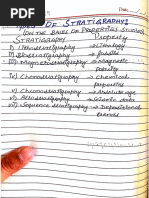 Date
Types OF STRATIGRAPHY:
(ON THE BASES OF PROPERTIES STUDIED)
STRATIGRAPHY Property
i) Lithostratigraphy → Lithology
ii) Biostratigraphy → fossils
iii) Magnetostratigraphy → Magnetic
polarity
iv) Chemostratigraphy → Chemical
properties
v) Chronostratigraphy → Absolute age
vi) → Seismic data
vii) Sequence stratigraphy → Depositional
periods